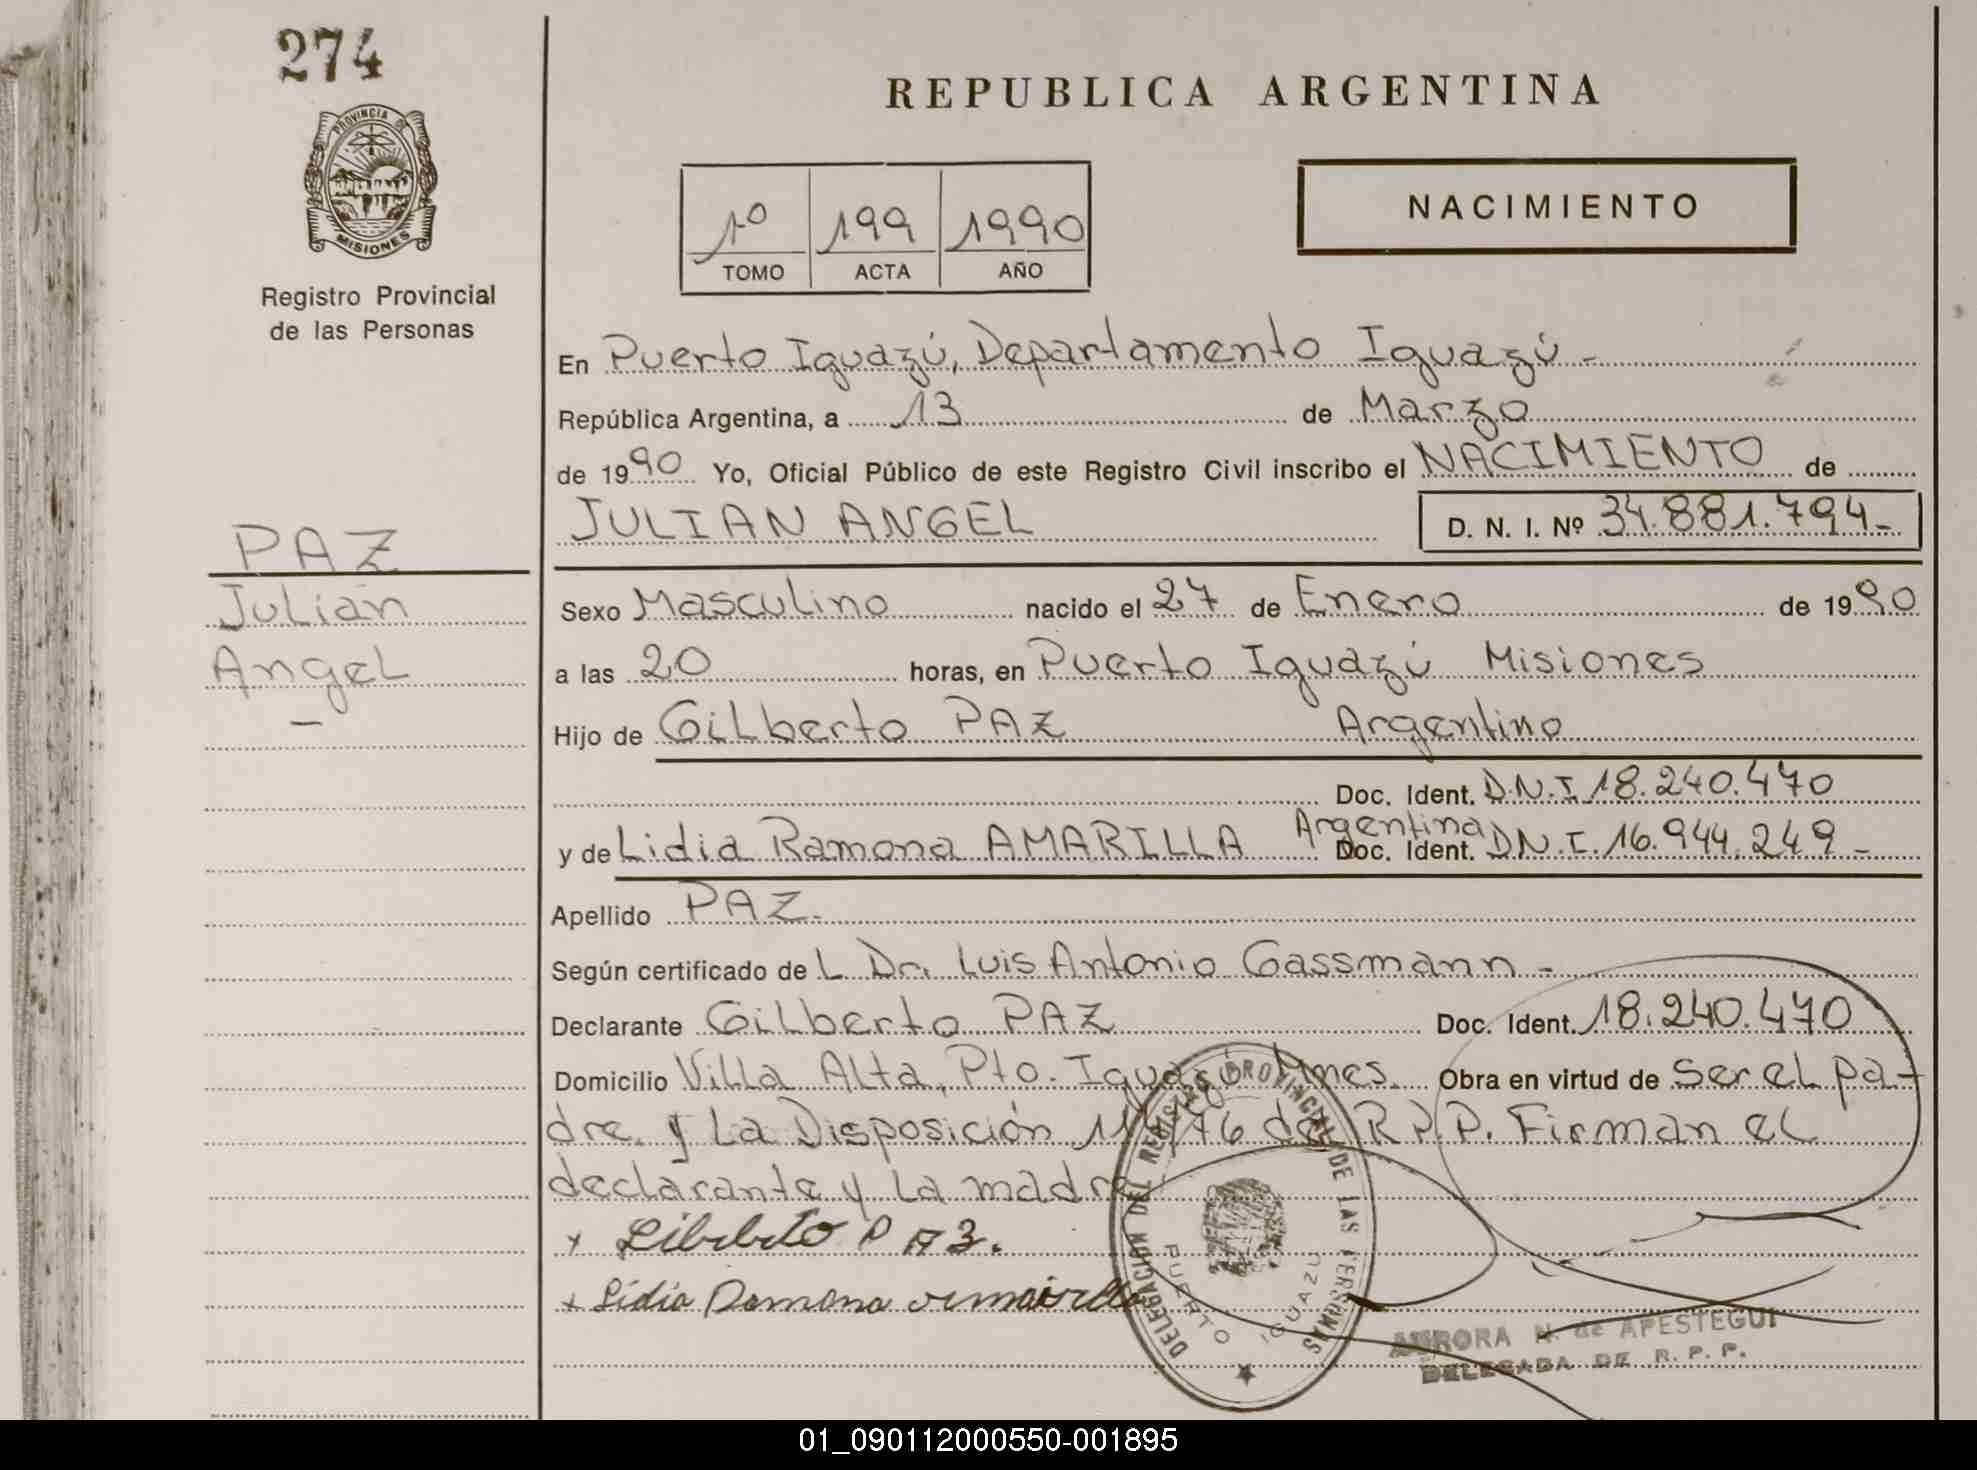 274
PROVINCIA DE
MISIONES
Registro Provincial
de las Personas
REPUBLICA ARGENTINA
1º 199 1990
TOMO ACTA AÑO
NACIMIENTO
En Puerto Iguazú, Departamento Iguazú -
República Argentina, a 13 de Marzo
de 1990 Yo, Oficial Público de este Registro Civil inscribo el NACIMIENTO de
JULIAN ANGEL D. N. I. Nº 34.881.794-
PAZ
Julian
Angel
-
Sexo Masculino nacido el 27 de Enero de 1990
a las 20 horas, en Puerto Iguazú Misiones
Hijo de Gilberto PAZ Argentino
Doc. Ident. D.N.I 18.240.470
y de Lidia Ramona AMARILLA Argentina Doc. Ident. D.N.I. 16.944.249-
Apellido PAZ.
Según certificado de L Dr. Luis Antonio Gassmann -
Declarante Gilberto PAZ Doc. Ident. 18.240.470
Domicilio Villa Alta, Pto. Iguazú Mnes. Obra en virtud de Ser el pa-
dre y La Disposición 11/76 del R.P.P. Firman el
declarante y La madre
+ PAZ.
+ Lidia Ramona amarilla
DELEGACION DEL REGISTRO PROVINCIAL DE LAS PERSONAS
PUERTO IGUAZU
AURORA N. de APESTEGUI
DELEGADA DE R. P. P.
01_090112000550-001895